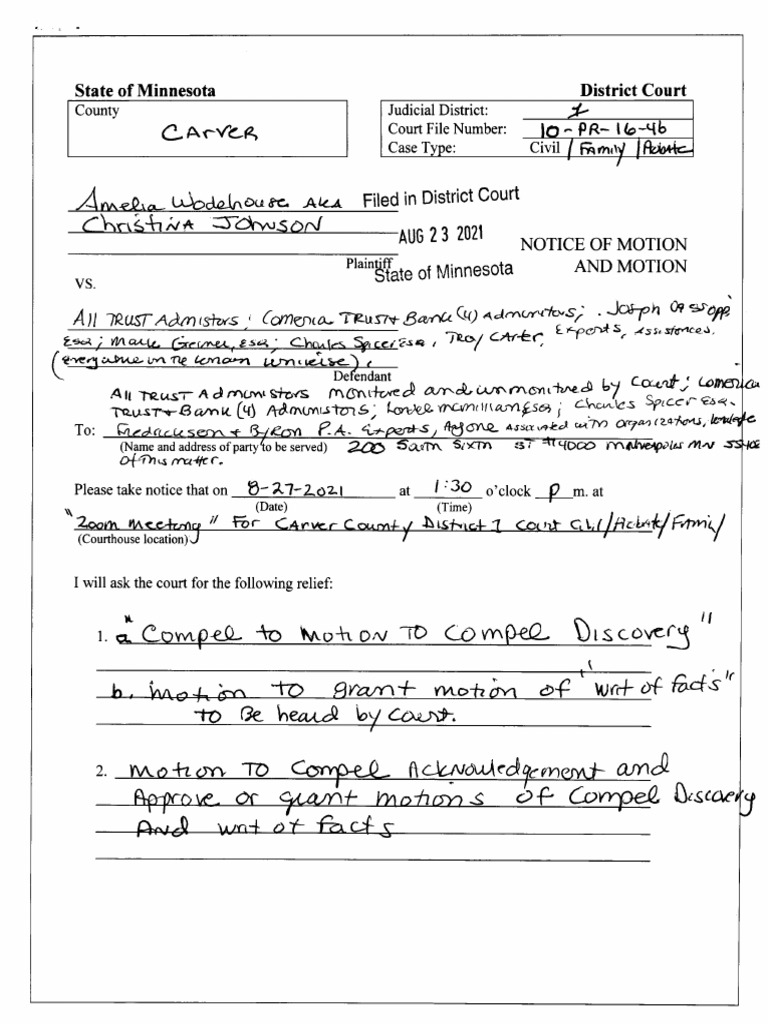 State of Minnesota District Court
County Judicial District: 1
CArvER Court File Number: 10-PR-16-46
Case Type: Civil / FAMily / Probate
Amelia Wodehouse AKA Filed in District Court
ChristiNA JOHNSON
AUG 23 2021
NOTICE OF MOTION
Plaintiff AND MOTION
State of Minnesota
VS.
All TRUST Admistors; Comerica TRUST + Bank (4) Administors; Joseph
Esq; Mark Greiner, Esq; Charles Spicer Esq, Troy CArter, Experts, Assistences.
(everyone in the universe),
Defendant
All TRUST Administors monitored and unmonitored by Court; Comerica
TRUST + Bank (4) Administors; Londell mcmillian Esq; Charles Spicer Esq.
To: Fredrickson + Byron P.A. Experts, Anyone Associated with organizations,
(Name and address of party to be served) 200 South Sixth ST #4000 MN
of this matter.
Please take notice that on 8-27-2021 at 1:30 o'clock p m. at
(Date) (Time)
"Zoom Meeting" For CArver County District 1 Court Civil/Probate/Family
(Courthouse location)
I will ask the court for the following relief:
1. a "Compel to Motion TO Compel Discovery"
b. motion TO grant motion of "writ of facts"
TO Be heard by Court.
2. Motion TO Compel Acknowledgement and
Approve or grant motions of Compel Discovery
And writ of facts